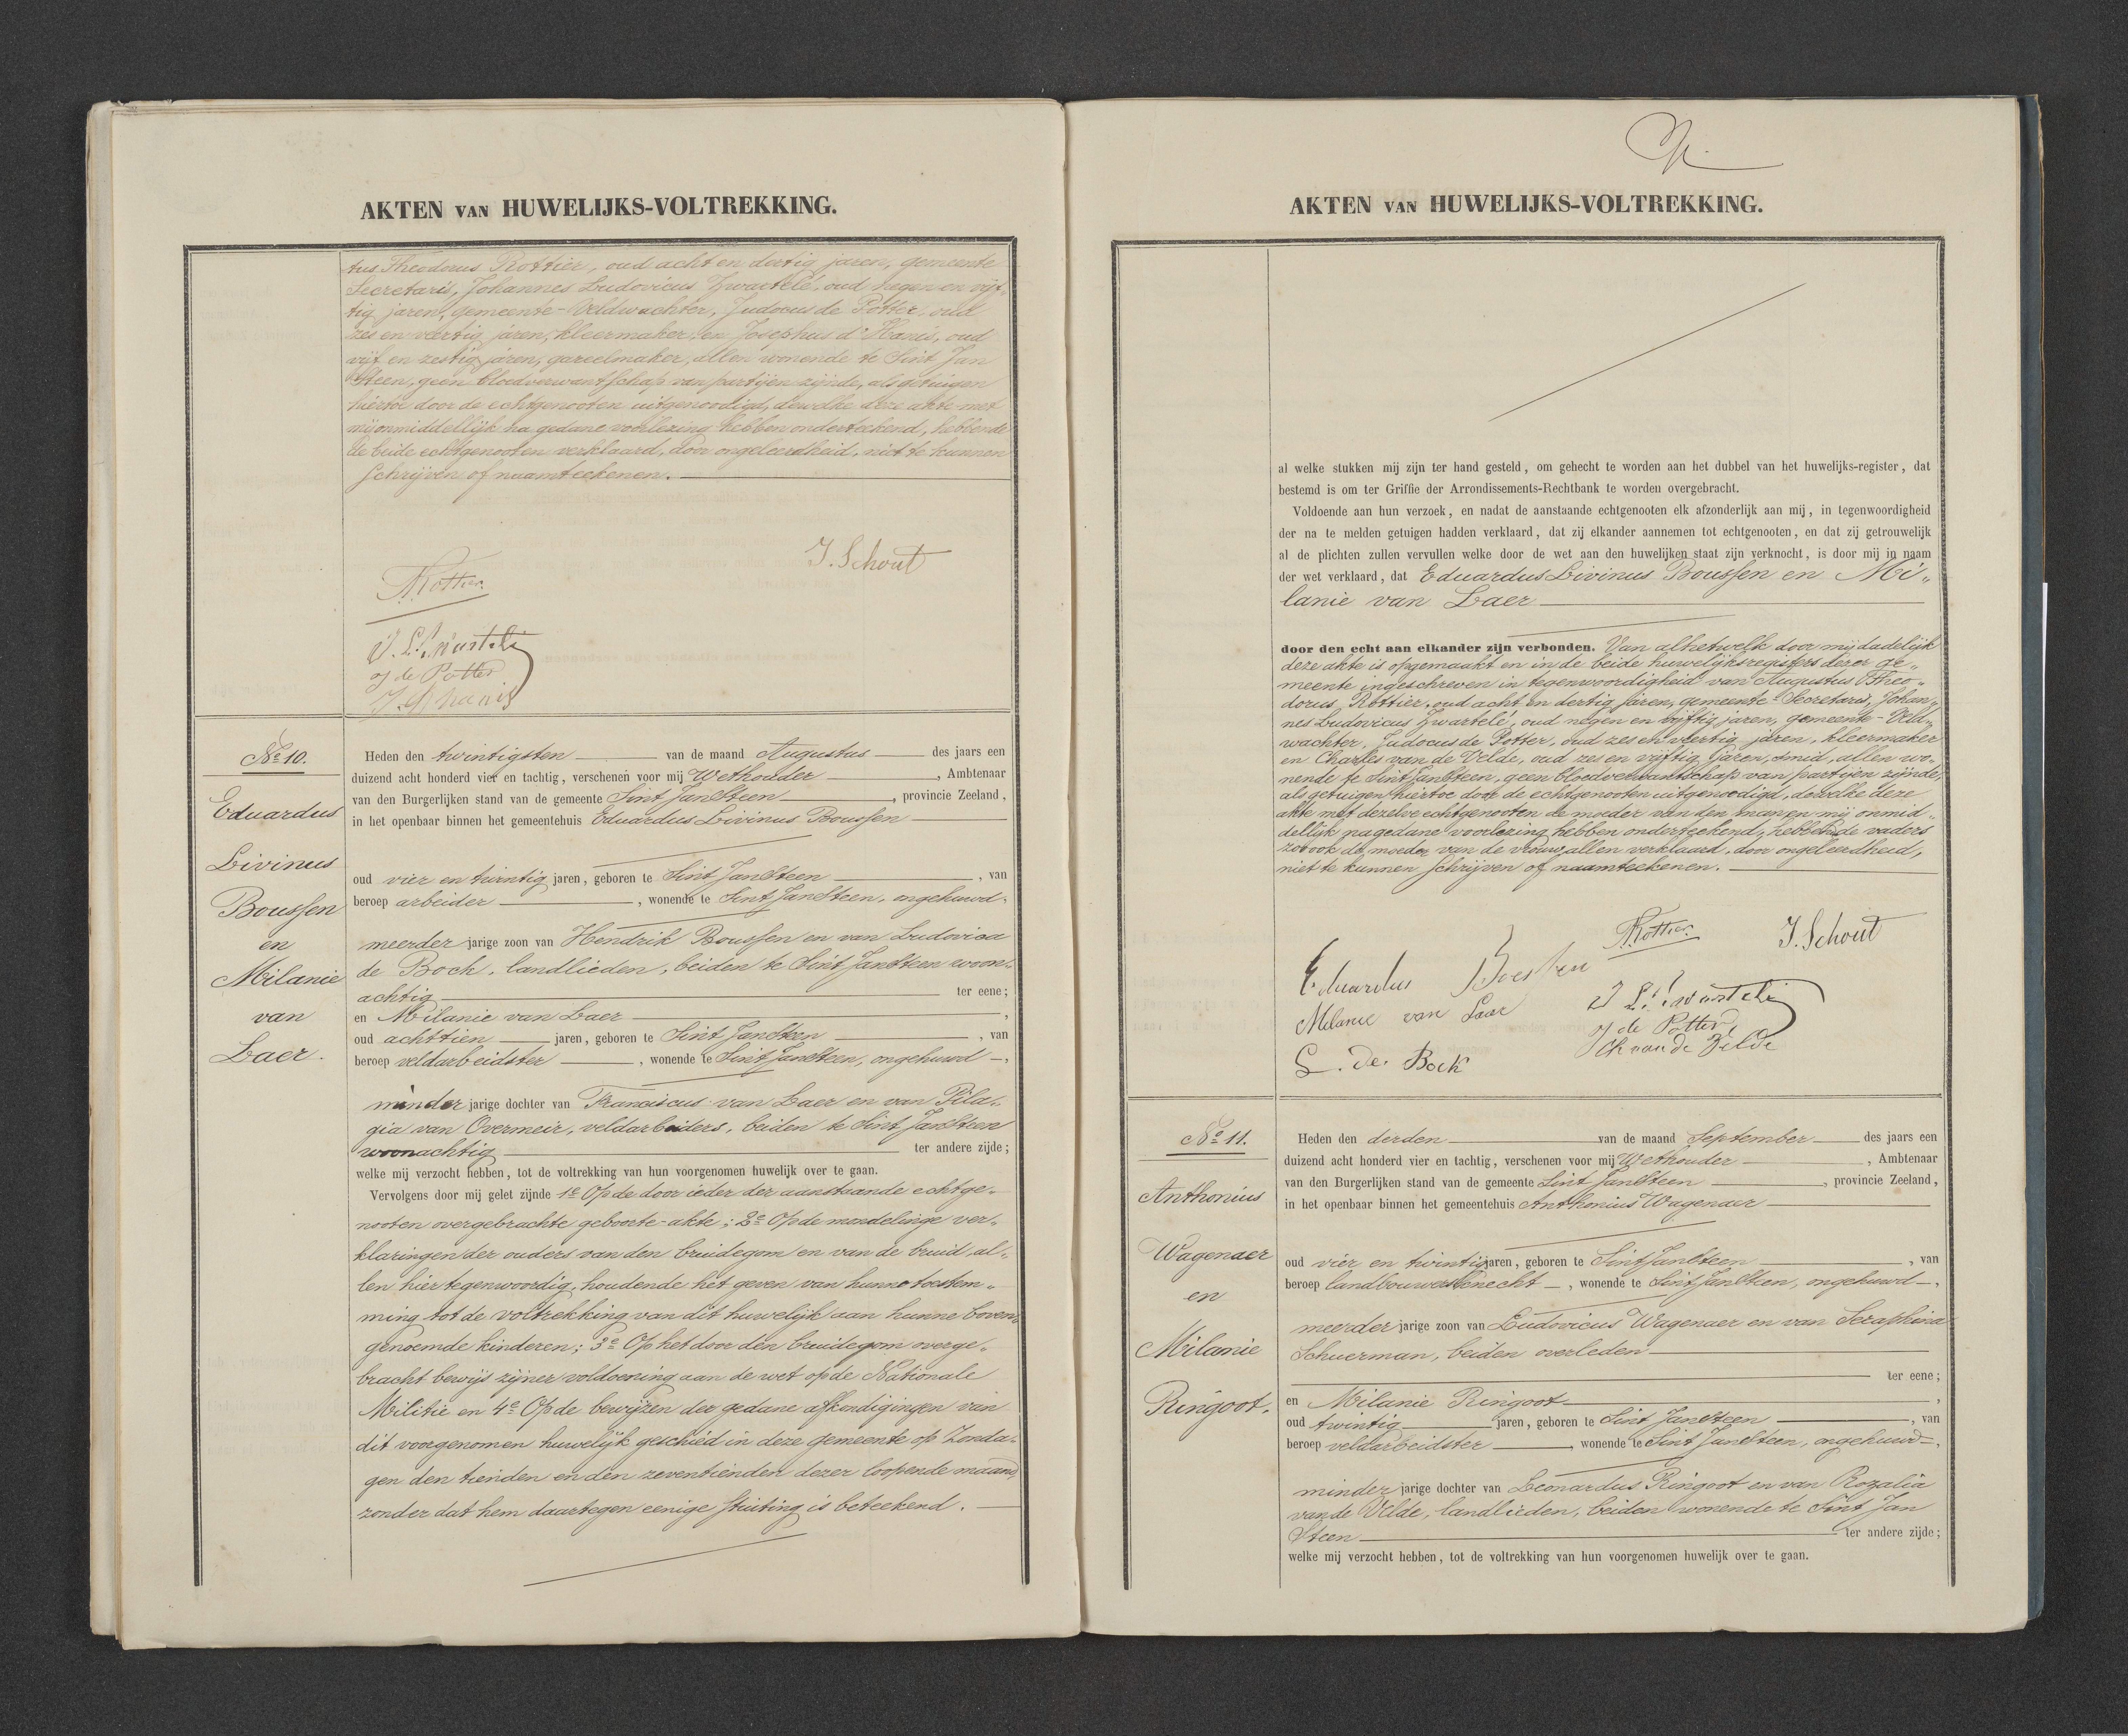 AKTEN VAN HUWELIJKS-VOLTREKKING.
tus Theodorus Rottier, oud acht en dertig jaren, gemeente
Secretaris, Johannes Ludovicus Zwartelé, oud negen en vijf„
tig jaren, gemeente-Veldwachter, Judocus de Potter, oud
zes en veertig jaren, kleermaker, en Josephus d'Hanis, oud
vijf en zestig jaren, gareelmaker, allen wonende te Sint Jan
Steen, geen bloedverwantschap van partijen zijnde, als getuigen
hiertoe door de echtgenooten uitgenoodigd, dewelke deze akte met
mij onmiddellijk na gedane voorlezing hebben onderteekend, hebbende
de beide echtgenooten verklaard, door ongeleerdheid, niet te kunnen
schrijven of naamteekenen.
J. Schout
Rottier
J. L. Zwartelé
J de Potter
J. d'hanis
No 10.
Eduardus
Livinus
Boussen
en
Milanie
van
Laer.
Heden den twintigsten van de maand Augustus des jaars een
duizend acht honderd vier en tachtig, verschenen voor mij Wethouder, Ambtenaar
van den Burgerlijken stand van de gemeente Sint JanSteen, provincie Zeeland,
in het openbaar binnen het gemeentehuis Eduardus Livinus Boussen
oud vier en twintig jaren, geboren te Sint JanSteen, van
beroep arbeider, wonende te Sint JanSteen, ongehuwd,
meerder jarige zoon van Hendrik Boussen en van Ludovica
de Bock, landlieden, beiden te Sint JanSteen woon„
achtig ter eene;
en Milanie van Laer,
oud achttien jaren, geboren te Sint JanSteen, van
beroep veldarbeidster, wonende te Sint JanSteen, ongehuwd —,
minder jarige dochter van Franciscus van Laer en van Pila„
gia van Overmeir, veldarbeiders, beiden te Sint JanSteen
woonachtig ter andere zijde;
welke mij verzocht hebben, tot de voltrekking van hun voorgenomen huwelijk over te gaan.
Vervolgens door mij gelet zijnde 1e Op de door ieder der aanstaande echtge„
nooten overgebrachte geboorte-akte; 2e Op de mondelinge ver„
klaringen der ouders van den bruidegom en van de bruid, al„
len hier tegenwoordig, houdende het geven van hunne toestem„
ming tot de voltrekking van dit huwelijk aan hunne boven„
genoemde kinderen; 3e Op het door den bruidegom overge„
bracht bewijs zijner voldoening aan de wet op de Nationale
Militie en 4e Op de bewijzen der gedane afkondigingen van
dit voorgenomen huwelijk geschied in deze gemeente op Zonda„
gen den tienden en den zeventienden dezer loopende maand,
zonder dat hem daartegen eenige stuiting is beteekend.
AKTEN VAN HUWELIJKS-VOLTREKKING.
al welke stukken mij zijn ter hand gesteld, om gehecht te worden aan het dubbel van het huwelijks-register, dat
bestemd is om ter Griffie der Arrondissements-Rechtbank te worden overgebracht.
Voldoende aan hun verzoek, en nadat de aanstaande echtgenooten elk afzonderlijk aan mij, in tegenwoordigheid
der na te melden getuigen hadden verklaard, dat zij elkander aannemen tot echtgenooten, en dat zij getrouwelijk
al de plichten zullen vervullen welke door de wet aan den huwelijken staat zijn verknocht, is door mij in naam
der wet verklaard, dat Eduardus Livinus Boussen en Mi„
lanie van Laer
door den echt aan elkander zijn verbonden. Van al hetwelk door mij dadelijk
deze akte is opgemaakt en in de beide huwelijksregisters dezer ge„
meente ingeschreven in tegenwoordigheid van Augustus Theo„
dorus Rottier, oud acht en dertig jaren, gemeente-Secretaris, Johan„
nes Ludovicus Zwartelé, oud negen en vijftig jaren, gemeente-Veld„
wachter, Judocus de Potter, oud zes en veertig jaren, kleermaker
en Charles van de Velde, oud zes en vijftig jaren, smid, allen wo„
nende te Sint JanSteen, geen bloedverwantschap van partijen zijnde,
als getuigen hiertoe door de echtgenooten uitgenoodigd, dewelke deze
akte met dezelve echtgenooten de moeder van den man en mij onmid„
dellijk na gedane voorlezing hebben onderteekend, hebbende vaders
zoo ook de moeder van de vrouw allen verklaard, door ongeleerdheid,
niet te kunnen schrijven of naamteekenen.
Rottier
J. Schout
Eduardus Boessen
Milanie van Laer
J L. Zwartelé
J de Potter
Ch van de Velde
L. De Bock
No 11.
Anthonius
Wagenaer
en
Milanie
Ringoot.
Heden den derden van de maand September des jaars een
duizend acht honderd vier en tachtig, verschenen voor mij Wethouder, Ambtenaar
van den Burgerlijken stand van de gemeente Sint JanSteen, provincie Zeeland,
in het openbaar binnen het gemeentehuis Anthonius Wagenaer
oud vier en twintig jaren, geboren te Sint JanSteen, van
beroep landbouwersknecht —, wonende te Sint JanSteen, ongehuwd —,
meerder jarige zoon van Ludovicus Wagenaer en van Seraphina
Schuerman, beiden overleden
ter eene;
en Milanie Ringoot,
oud twintig jaren, geboren te Sint JanSteen, van
beroep veldarbeidster, wonende te Sint JanSteen, ongehuwd —,
minder jarige dochter van Leonardus Ringoot en van Rozalia
van de Velde, landlieden, beiden wonende te Sint Jan
Steen ter andere zijde;
welke mij verzocht hebben, tot de voltrekking van hun voorgenomen huwelijk over te gaan.